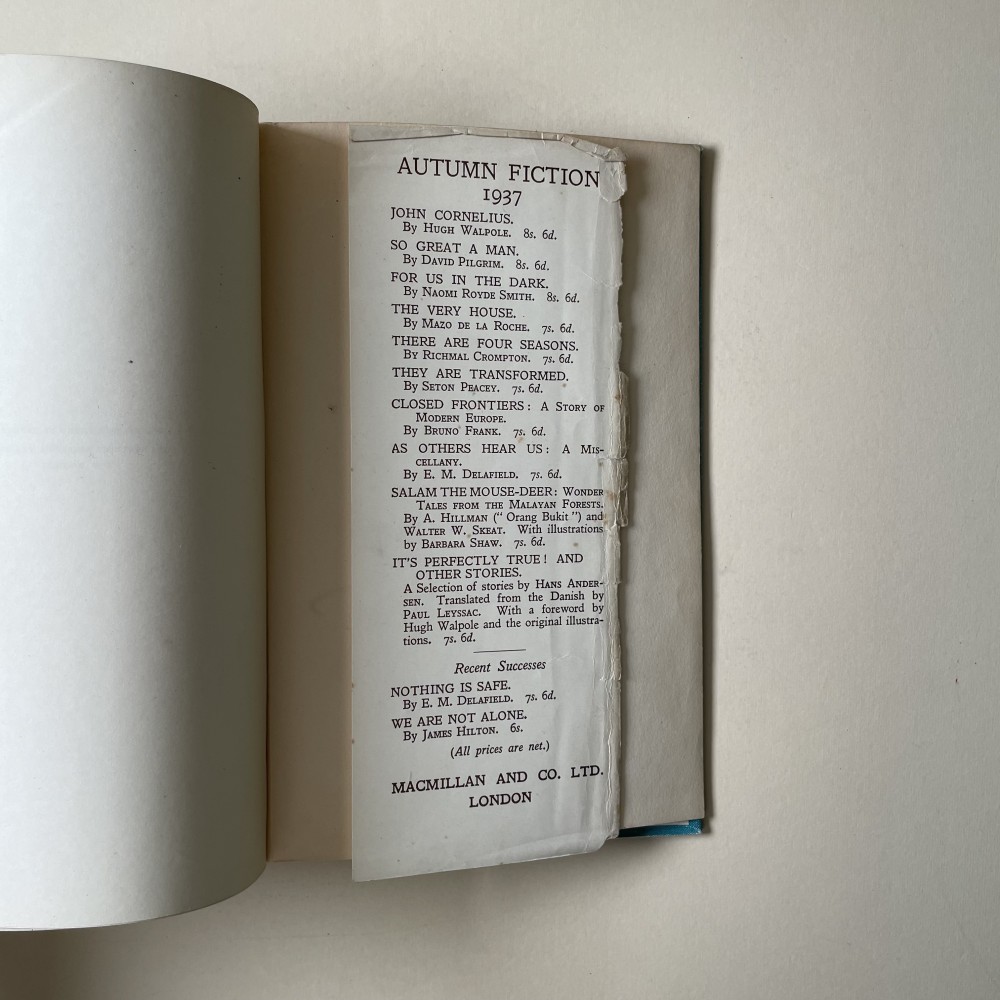 AUTUMN FICTION
1937
JOHN CORNELIUS.
By Hugh Walpole. 8s. 6d.
SO GREAT A MAN.
By David Pilgrim. 8s. 6d.
FOR US IN THE DARK.
By Naomi Royde Smith. 8s. 6d.
THE VERY HOUSE.
By Mazo de la Roche. 7s. 6d.
THERE ARE FOUR SEASONS.
By Richmal Crompton. 7s. 6d.
THEY ARE TRANSFORMED.
By Seton Peacey. 7s. 6d.
CLOSED FRONTIERS: A Story of
Modern Europe.
By Bruno Frank. 7s. 6d.
AS OTHERS HEAR US: A Mis-
cellany.
By E. M. Delafield. 7s. 6d.
SALAM THE MOUSE-DEER: Wonder
Tales from the Malayan Forests.
By A. Hillman (“Orang Bukit”) and
Walter W. Skeat. With illustrations
by Barbara Shaw. 7s. 6d.
IT'S PERFECTLY TRUE! AND
OTHER STORIES.
A Selection of stories by Hans Ander-
sen. Translated from the Danish by
Paul Leyssac. With a foreword by
Hugh Walpole and the original illustra-
tions. 7s. 6d.
Recent Successes
NOTHING IS SAFE.
By E. M. Delafield. 7s. 6d.
WE ARE NOT ALONE.
By James Hilton. 6s.
(All prices are net.)
MACMILLAN AND CO. LTD.
LONDON